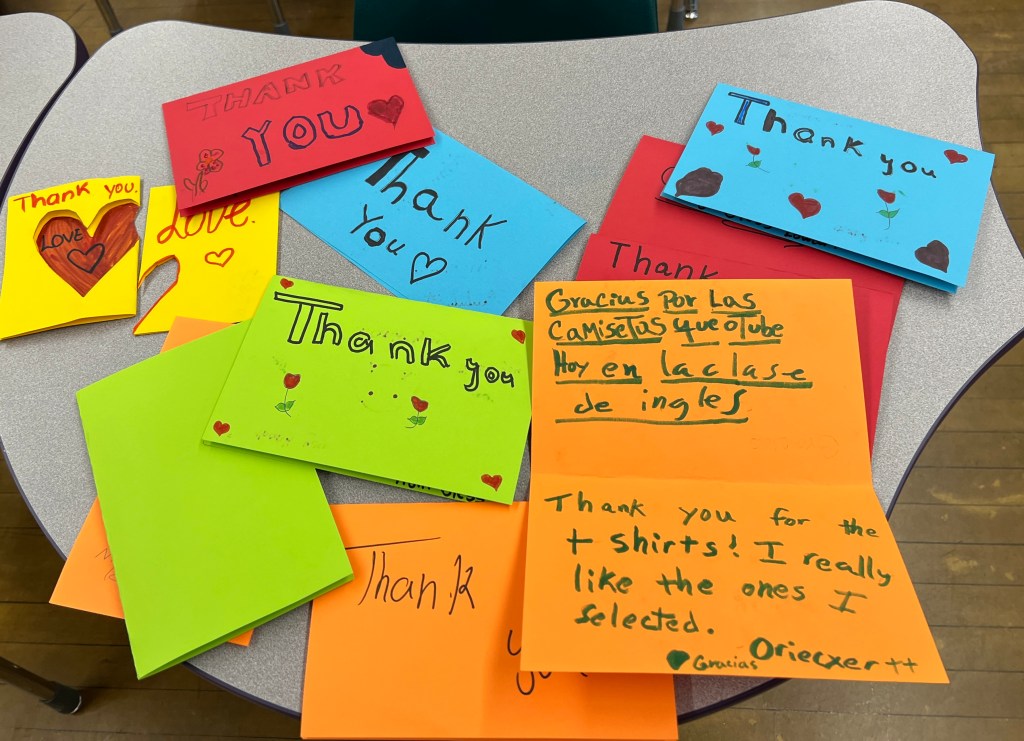 THANK
YOU
Thank you.
LOVE
Love.
Thank
You
Thank you
Thank
Thank you
Thank
Gracius Por Las
CamiseTas que oTube
Hoy en la clase
de ingles
Thank you for the
t shirts! I really
like the ones I
selected.
Gracias Oriecxer ++